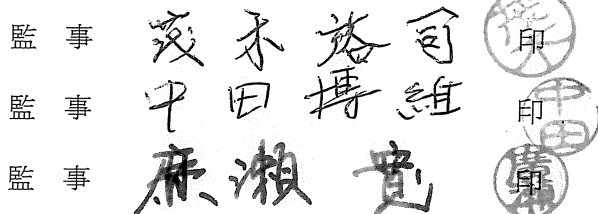 監 事 茂 木 裕 司 印
監 事 中 田 博 維 印 中田
監 事 廣 瀬 寛 印